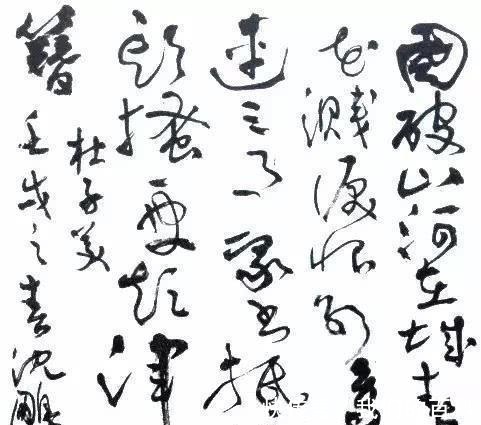 國破山河在城春
花濺淚恨別
連三月家書抵
頭搔更短渾
簪
杜子美
壬戌之春沈鵬